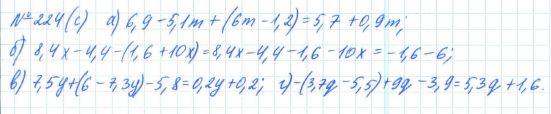 № 224(с) а) 6,9-5,1m+(6m-1,2)=5,7+0,9m;
б) 8,4x-4,4-(1,6+10x)=8,4x-4,4-1,6-10x=-1,6-6;
в) 7,5y+(6-7,3y)-5,8=0,2y+0,2; г)-(3,7q-5,5)+9q-3,9=5,3q+1,6.